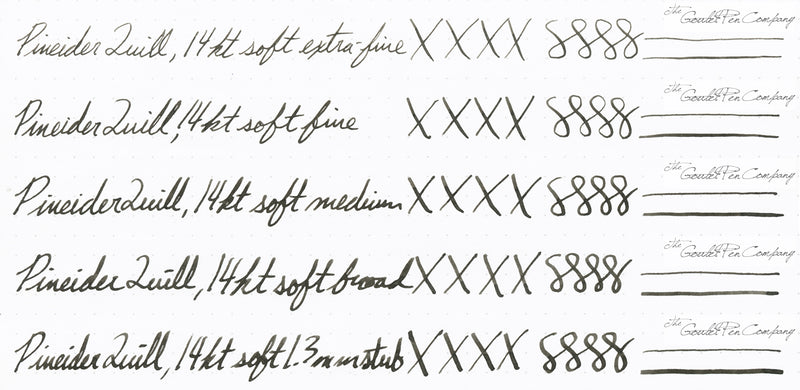 Pineider Quill, 14kt soft extra-fine XXXX The Goulet Pen Company
Pineider Quill, 14kt soft fine XXXX The Goulet Pen Company
Pineider Quill, 14kt soft medium XXXX The Goulet Pen Company
Pineider Quill, 14kt soft broad XXXX The Goulet Pen Company
Pineider Quill, 14kt soft 1.3mm stub XXXX The Goulet Pen Company